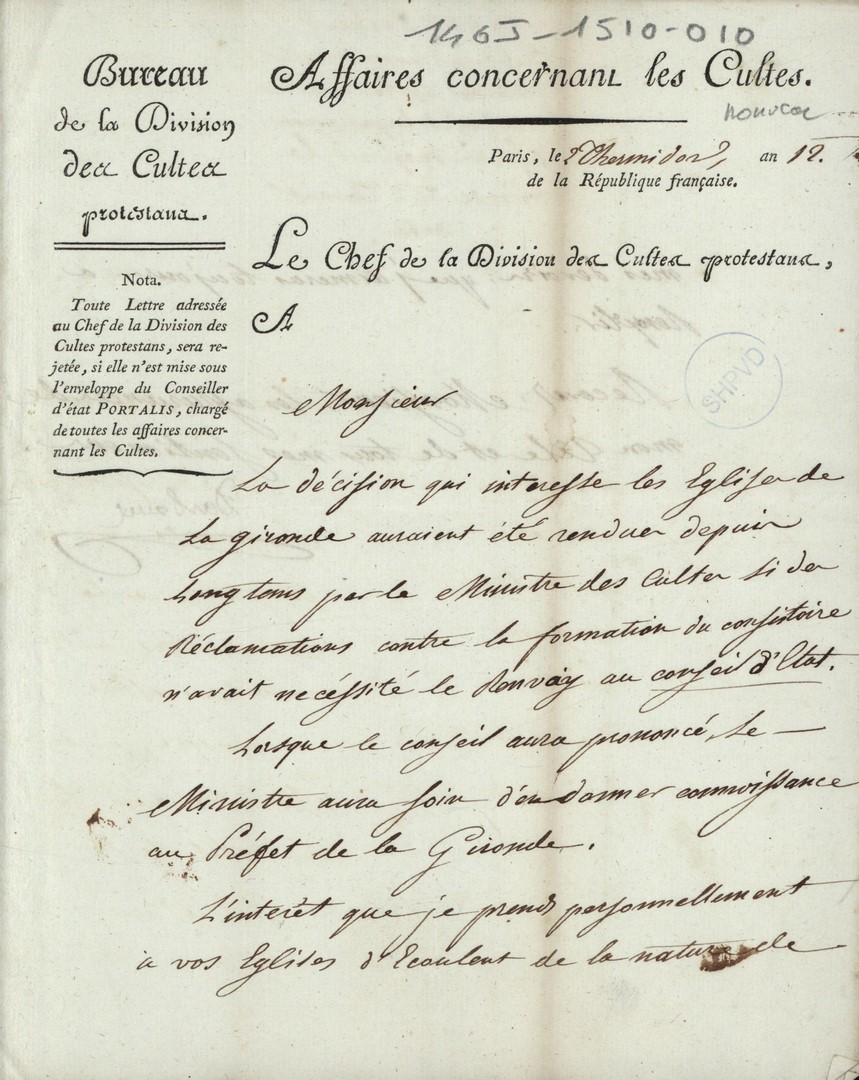 146J-1510-010
Bureau
de la Division
des Cultes
protestans.
Nota.
Toute Lettre adressée
au Chef de la Division des
Cultes protestans, sera re-
jetée, si elle n'est mise sous
l'enveloppe du Conseiller
d'état PORTALIS, chargé
de toutes les affaires concer-
nant les Cultes.
Affaires concernant les Cultes.
Paris, le 2 Thermidor, an 12.
de la République française.
Le Chef de la Division des Cultes protestans,
A
SHPVD
Monsieur
La décision qui interesse les Eglises de
La gironde auraient été rendues depuis
Longtems par le Ministre des Cultes si des
Réclamations contre la formation du consistoire
n'avait necéssité le Renvoiy au conseil d'Etat.
Lorsque le conseil aura prononcé, Le
Ministre aura soin d'en donner connoissance
au Préfet de la Gironde.
L'interêt que je prends personnellement
à vos Eglises d'Ecoulent de la nature de